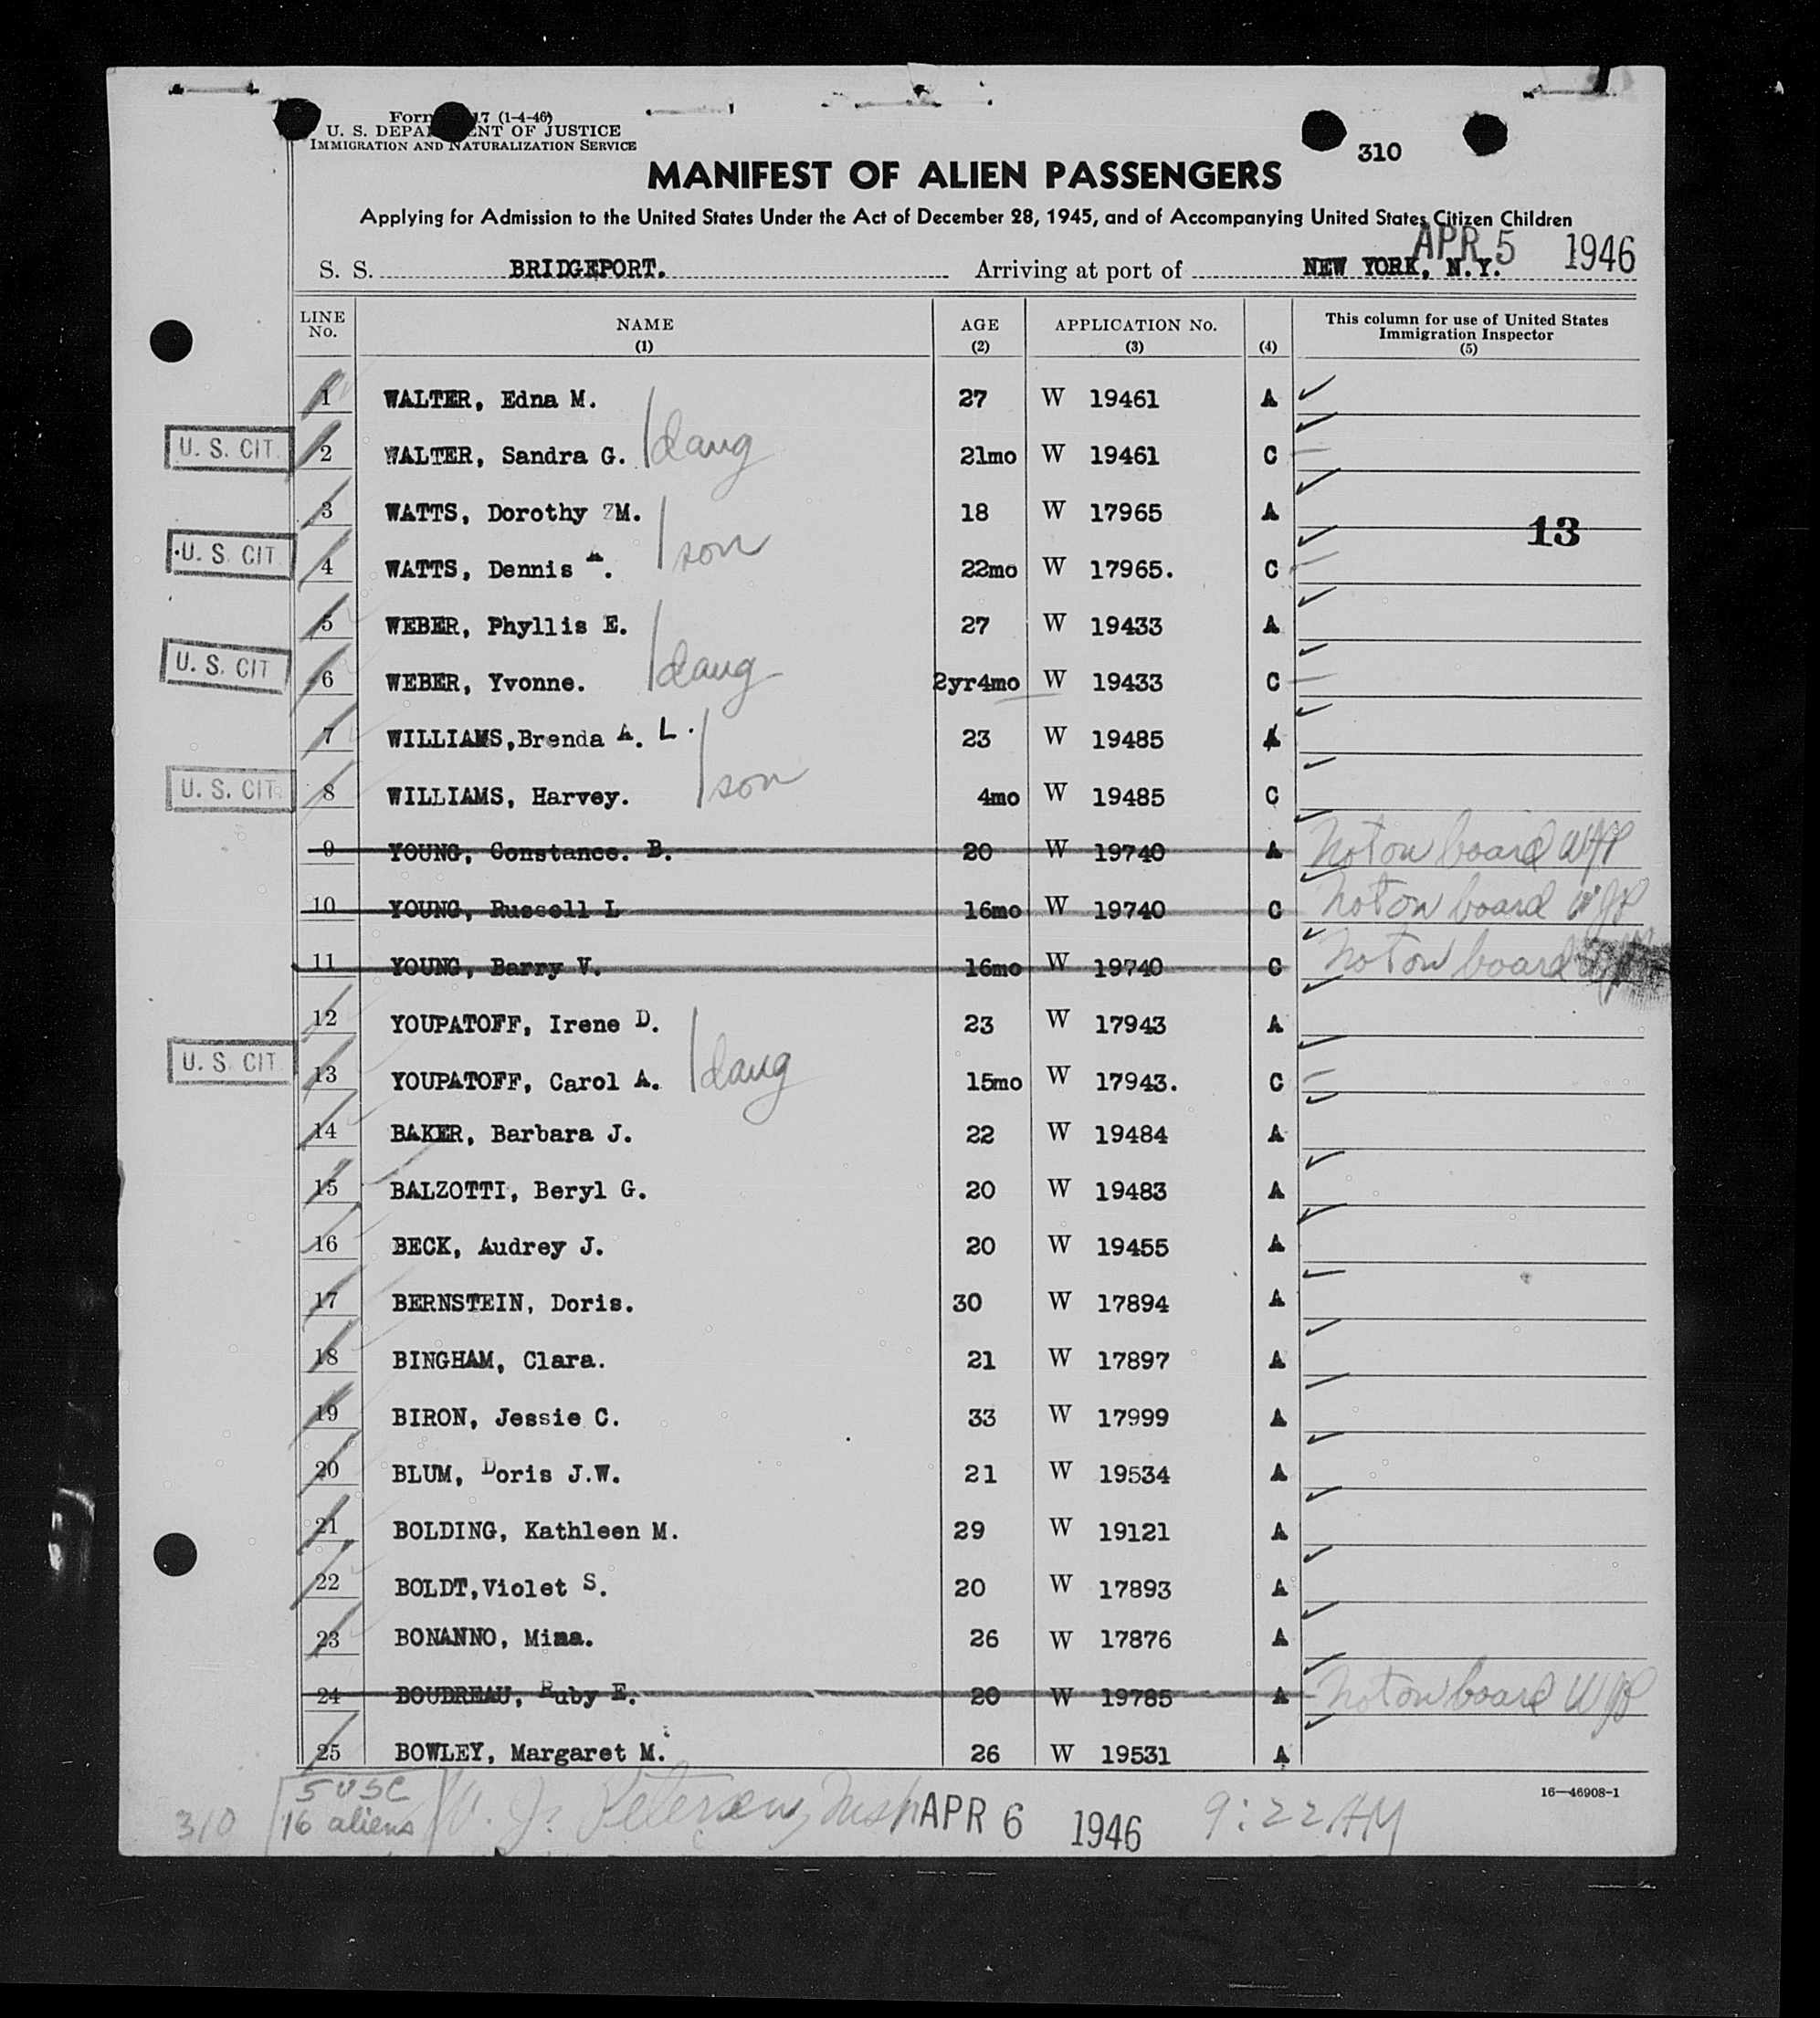 Form 17 (1-4-46)
U. S. DEPA ENT OF JUSTICE
IMMIGRATION AND NATURALIZATION SERVICE
310
MANIFEST OF ALIEN PASSENGERS
Applying for Admission to the United States Under the Act of December 28, 1945, and of Accompanying United States Citizen Children
APR 5 1946
S. S. BRIDGEPORT. Arriving at port of NEW YORK, N.Y.
LINE No. NAME (1) AGE (2) APPLICATION No. (3) (4) This column for use of United States Immigration Inspector (5)
1 WALTER, Edna M. 27 W 19461 A
U. S. CIT. 2 WALTER, Sandra G. daug 21mo W 19461 C
3 WATTS, Dorothy M. 18 W 17965 A
13
U. S. CIT 4 WATTS, Dennis A. son 22mo W 17965. C
5 WEBER, Phyllis E. 27 W 19433 A
U. S. CIT 6 WEBER, Yvonne. daug 2yr4mo W 19433 C
7 WILLIAMS,Brenda A. L. 23 W 19485 A
U. S. CIT. 8 WILLIAMS, Harvey. son 4mo W 19485 C
9 YOUNG, Constance. B. 20 W 19740 A Not on board WJP
10 YOUNG, Russell L 16mo W 19740 C Not on board WJP
11 YOUNG, Barry V. 16mo W 19740 C Not on board
12 YOUPATOFF, Irene D. 23 W 17943 A
U. S. CIT 13 YOUPATOFF, Carol A. daug 15mo W 17943. C
14 BAKER, Barbara J. 22 W 19484 A
15 BALZOTTI, Beryl G. 20 W 19483 A
16 BECK, Audrey J. 20 W 19455 A
17 BERNSTEIN, Doris. 30 W 17894 A
18 BINGHAM, Clara. 21 W 17897 A
19 BIRON, Jessie C. 33 W 17999 A
20 BLUM, Doris J.W. 21 W 19534 A
21 BOLDING, Kathleen M. 29 W 19121 A
22 BOLDT,Violet S. 20 W 17893 A
23 BONANNO, 26 W 17876 A
24 BOUDREAU, Ruby E. 20 W 19785 A Not on board WJP
25 BOWLEY, Margaret M. 26 W 19531 A
16—46908-1
310 5 USC
16 aliens W. J. Petersen, Insp APR 6 1946 9:22 AM